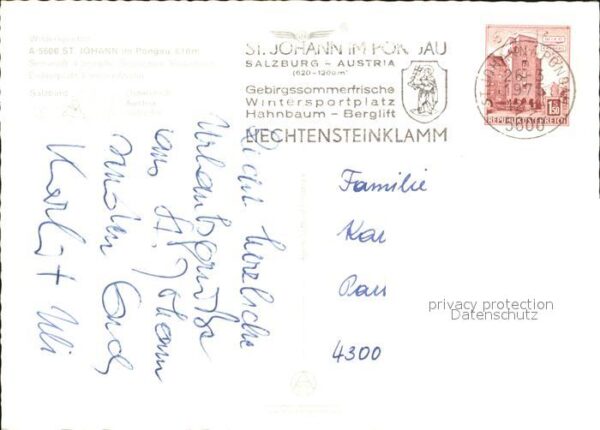 Wintersportort
A-5600 ST. JOHANN im Pongau, 616m
Salzburg
Austria
ST. JOHANN IM PONGAU
SALZBURG - AUSTRIA
(620-1200m)
Gebirgssommerfrische
Wintersportplatz
Hahnbaum - Berglift
LIECHTENSTEINKLAMM
5600
1.50
REPUBLIK ÖSTERREICH
Recht herzliche
Urlaubsgrüße
aus St. Johann
senden Euch
Karl + Uli
Familie
Kar
Pau
4300
privacy protection
Datenschutz